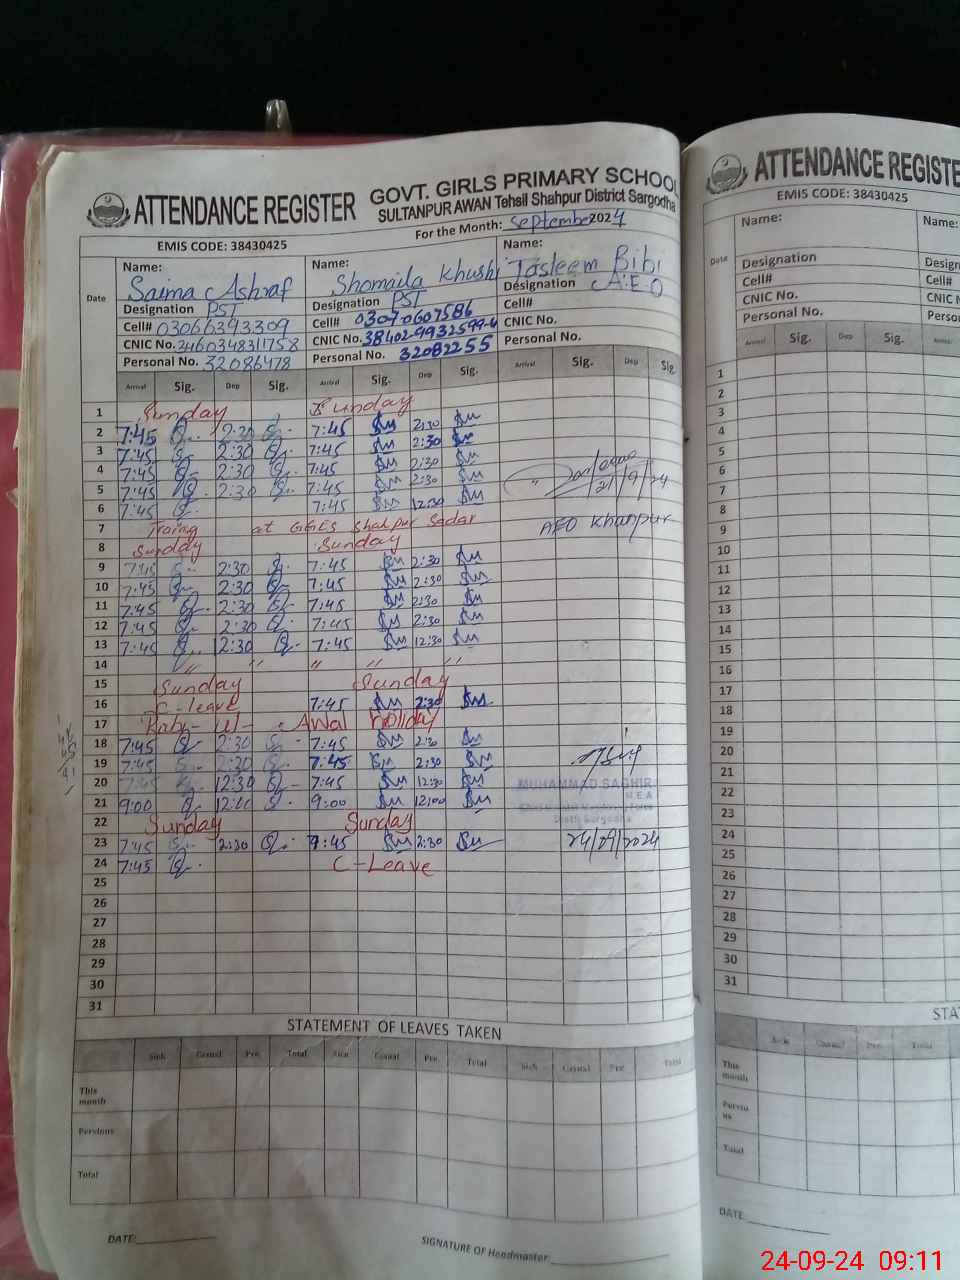 ATTENDANCE REGISTER GOVT. GIRLS PRIMARY SCHOOL
SULTANPUR AWAN Tehsil Shahpur District Sargodha
EMIS CODE: 38430425 For the Month: September 2024
Date
Name: Saima Ashraf Name: Shomaila Khushi Name: Tasleem Bibi
Designation PST Designation PST Designation A.E.O
Cell# 03066393309 Cell# 03070607586 Cell#
CNIC No. 2460348311758 CNIC No. 38402-9932599-4 CNIC No.
Personal No. 32086478 Personal No. 32082255 Personal No.
Arrival Sig. Dep Sig. Arrival Sig. Dep Sig. Arrival Sig. Dep Sig
1 Sunday Sunday
2 7:45 2:30 7:45 2:30
3 7:45 2:30 7:45 2:30
4 7:45 2:30 7:45 2:30
5 7:45 2:30 7:45 2:30 21/9/24
6 7:45 7:45 12:30
7 Traing at GGES Shahpur Sadar AEO Khanpur
8 Sunday Sunday
9 7:45 2:30 7:45 2:30
10 7:45 2:30 7:45 2:30
11 7:45 2:30 7:45 2:30
12 7:45 2:30 7:45 2:30
13 7:45 12:30 7:45 12:30
14 " " " " "
15 Sunday Sunday
16 C-leave 7:45 2:30
17 Awal holiday
18 7:45 2:30 7:45 2:30
19 7:45 2:30 7:45 2:30
20 7:45 12:30 7:45 12:30 MUHAMMAD SAGHIR
M E A
21 9:00 12:00 9:00 12:00
22 Sunday Sunday
23 7:45 2:30 7:45 2:30 24/09/2024
24 7:45 C-Leave
25
26
27
28
29
30
31
STATEMENT OF LEAVES TAKEN
Sick Casual Pre. Total Sick Casual Pre. Total Sick Casual Pre. Total
This month
Pervious
Total
DATE: SIGNATURE OF Headmaster:
ATTENDANCE REGISTE
EMIS CODE: 38430425
Date
Name: Name:
Designation Design
Cell# Cell#
CNIC No. CNIC N
Personal No. Person
Arrival Sig. Dep Sig. Arrival
1
2
3
4
5
6
7
8
9
10
11
12
13
14
15
16
17
18
19
20
21
22
23
24
25
26
27
28
29
30
31
STA
Sick Casual Pre. Total
This month
Perviou us
Total
DATE:
24-09-24 09:11